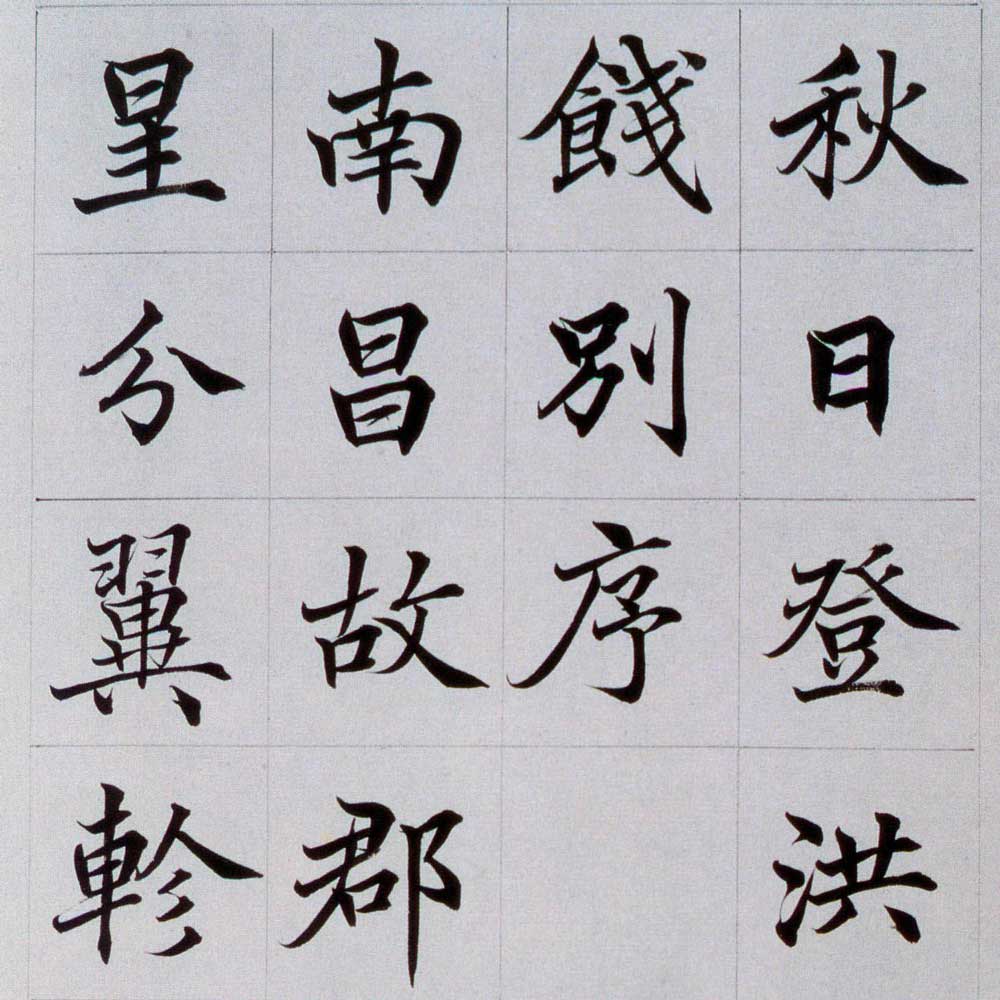 秋日登洪
餞別序
南昌故郡
星分翼軫